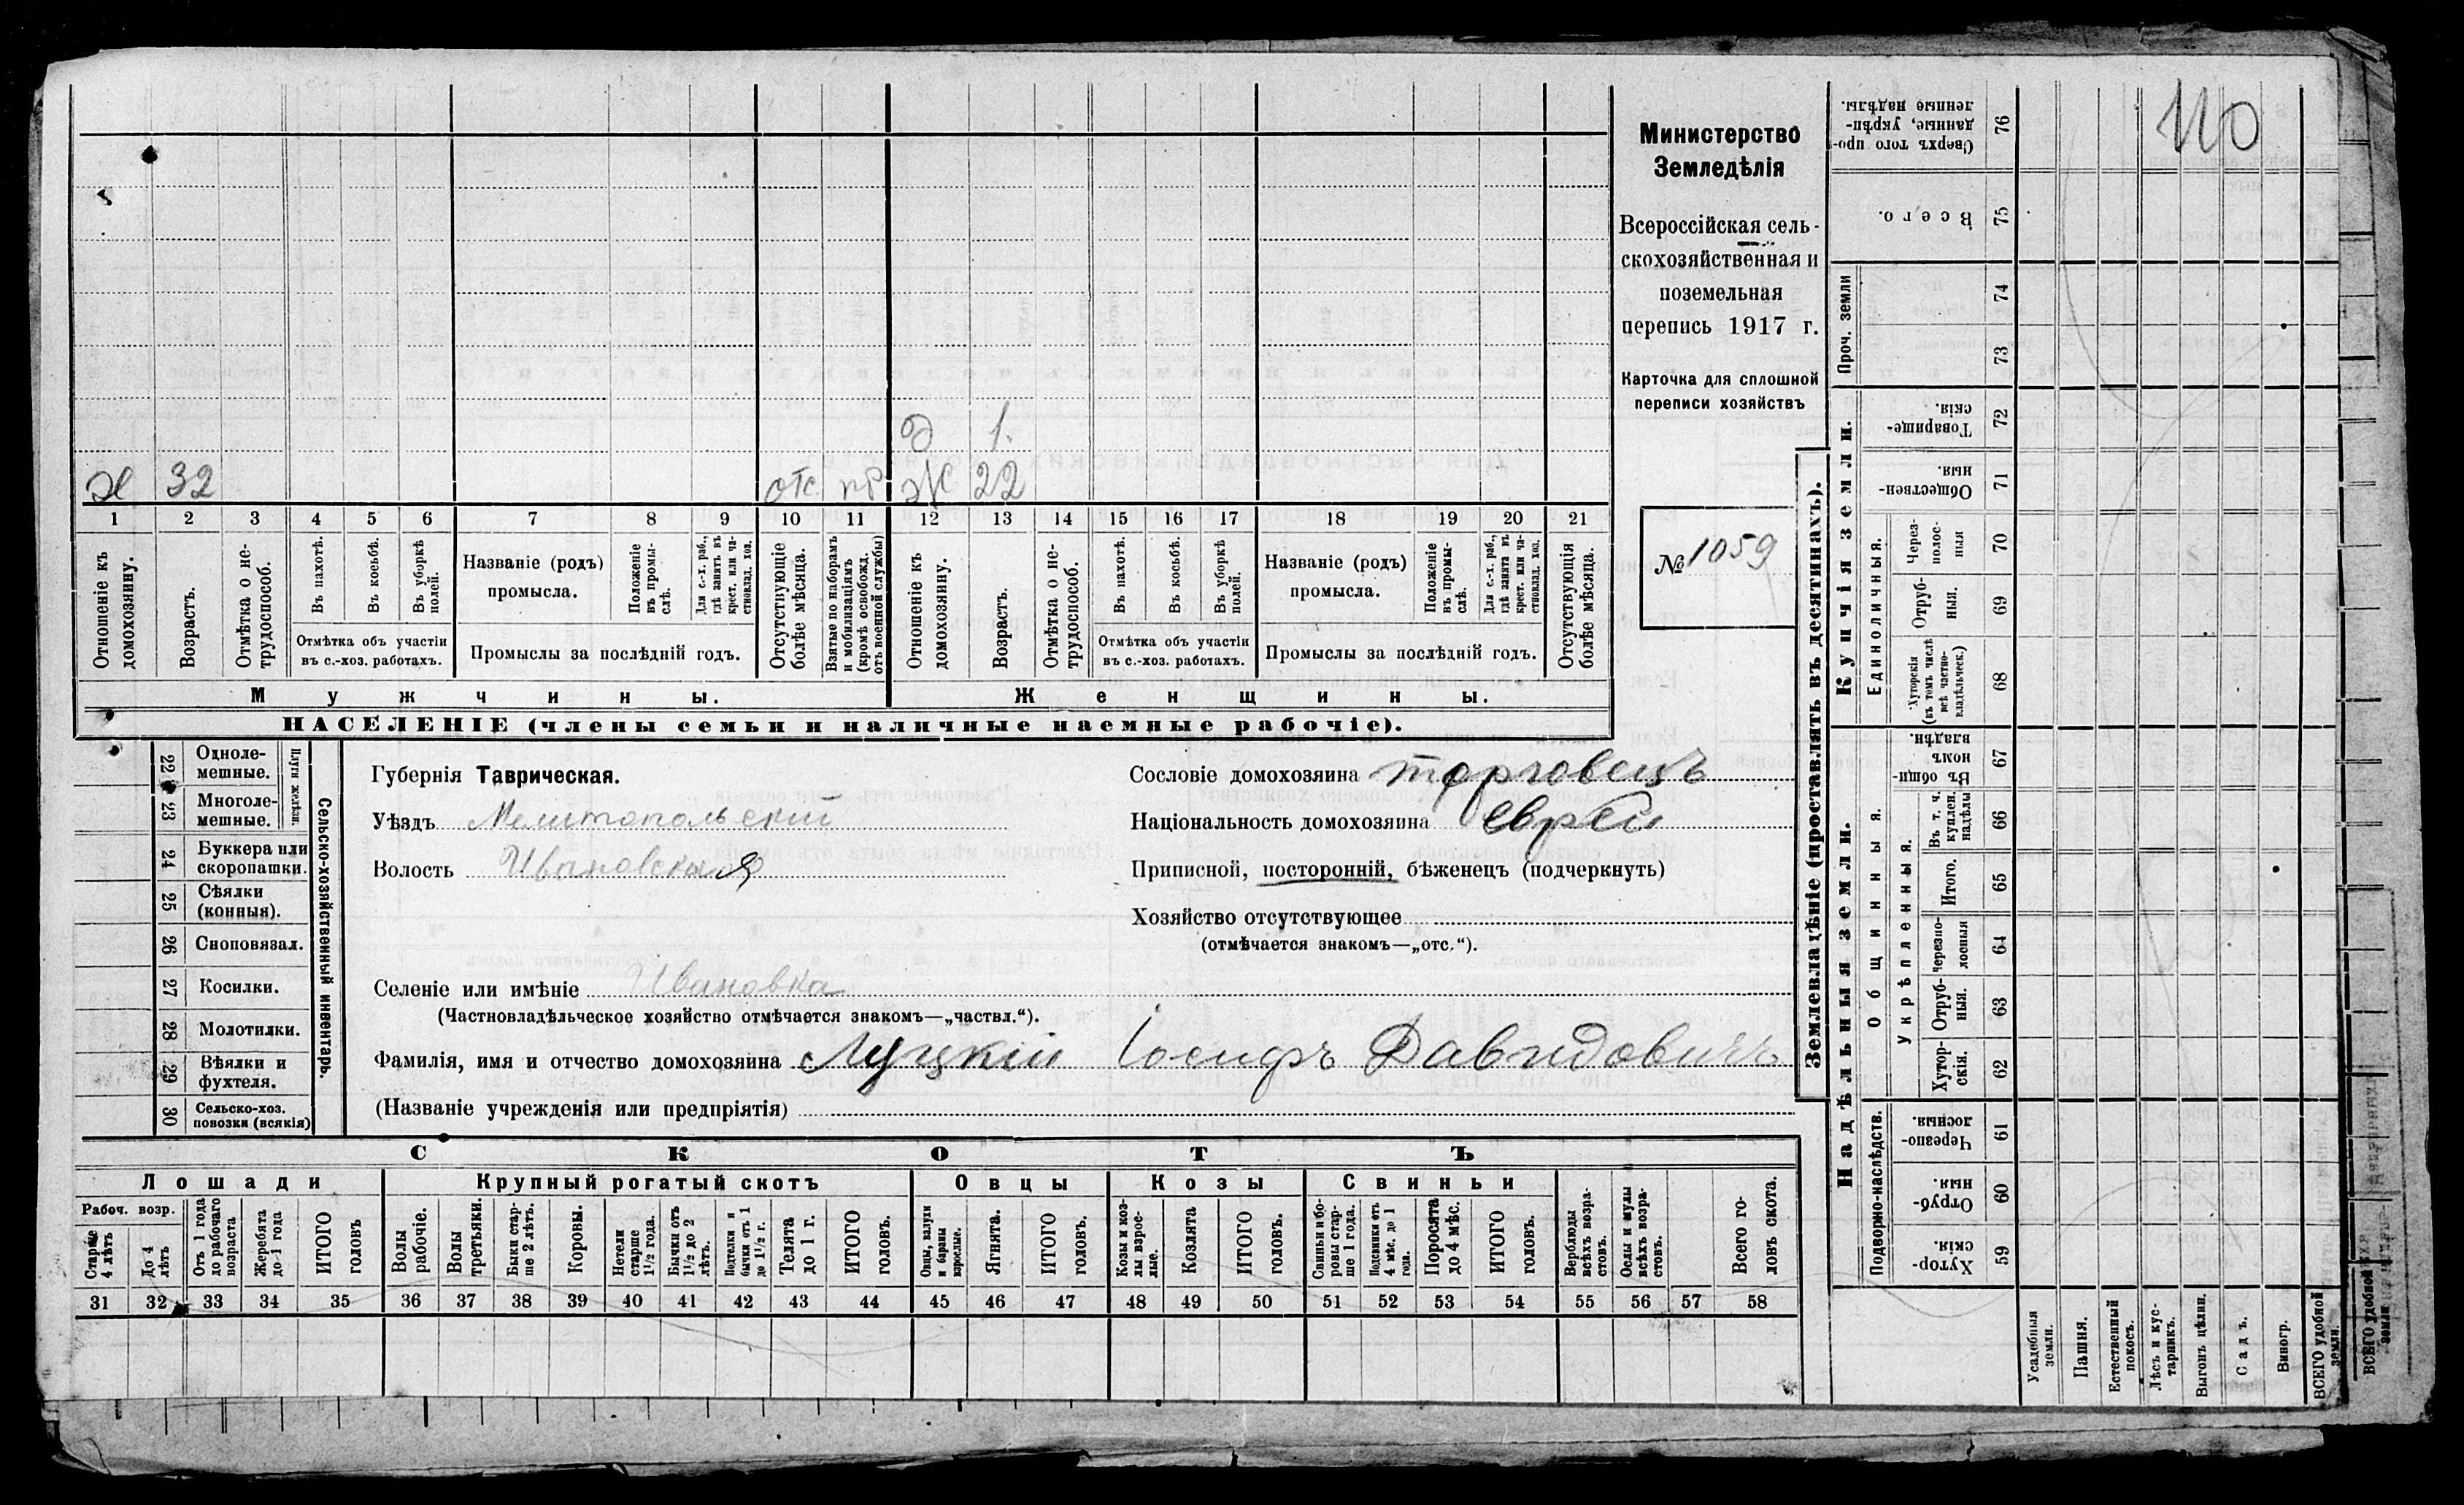 Министерство
Земледѣлія
Всероссійская сель-
скохозяйственная и
поземельная
перепись 1917 г.
Карточка для сплошной
переписи хозяйствъ
№ 1059
110
д 1.
х 32 отс. пр ж 22
1 2 3 4 5 6 7 8 9 10 11 12 13 14 15 16 17 18 19 20 21
Отношеніе къ домохозяину.
Возрастъ.
Отмѣтка о не-трудоспособ.
Въ пахотѣ.
Въ косьбѣ.
Въ уборкѣ полей.
Отмѣтка объ участіи
въ с.-хоз. работахъ.
Названіе (родъ)
промысла.
Положеніе въ промы-слѣ.
Для с.-х. раб., гдѣ занятъ въ крест. или ча-стновлад. хоз.
Промыслы за послѣдній годъ.
Отсутствующіе болѣе мѣсяца.
Взятые по наборамъ и мобилизаціямъ (кромѣ освобожд. отъ военной службы)
Отношеніе къ домохозяину.
Возрастъ.
Отмѣтка о не-трудоспособ.
Въ пахотѣ.
Въ косьбѣ.
Въ уборкѣ полей.
Отмѣтка объ участіи
въ с.-хоз. работахъ.
Названіе (родъ)
промысла.
Положеніе въ промы-слѣ.
Для с.-х. раб., гдѣ занята въ крест. или ча-стновлад. хоз.
Промыслы за послѣдній годъ.
Отсутствующія болѣе мѣсяца.
Мужчины.
Женщины.
НАСЕЛЕНІЕ (члены семьи и наличные наемные рабочіе).
22 Одноле-мешные.
23 Многоле-мешные.
Плуги желѣзн.
24 Буккера или скоропашки.
25 Сѣялки (конныя).
26 Сноповязал.
27 Косилки.
28 Молотилки.
29 Вѣялки и фухтеля.
30 Сельско-хоз. повозки (всякія)
Сельско-хозяйственный инвентарь.
Губернія Таврическая.
Уѣздъ Мелитопольскій
Волость Ивановская
Сословіе домохозяина торговецъ
Національность домохозяина еврей
Приписной, посторонній, бѣженецъ (подчеркнуть)
Хозяйство отсутствующее
(отмѣчается знакомъ—„отс.“).
Селеніе или имѣніе Ивановка
(Частновладѣльческое хозяйство отмѣчается знакомъ—„частвл.“).
Фамилія, имя и отчество домохозяина Луцкій Іосифъ Давидовичъ
(Названіе учрежденія или предпріятія)
СКОТЪ
Лошади
Крупный рогатый скотъ
Овцы
Козы
Свиньи
Рабоч. возр.
Старше 4 лѣтъ
До 4 лѣтъ
Отъ 1 года до рабочаго возраста
Жеребята до 1 года
ИТОГО головъ
Волы рабочіе.
Волы третьяки.
Быки стар-ше 2 лѣтъ.
Коровы.
Нетели старше 1½ года.
Бычки отъ 1½ до 2 лѣтъ.
Подтелки и бычки отъ 1 до 1½ г.
Телята до 1 г.
ИТОГО головъ.
Овцы, валухи и бараны взрослые.
Ягнята.
ИТОГО головъ.
Козы и коз-лы взрос-лые.
Козлята
ИТОГО головъ.
Свиньи и бо-ровы стар-ше 1 года.
Подсвинки отъ 4 мѣс. до 1 года.
Поросята до 4 мѣс.
ИТОГО головъ.
Верблюды всѣхъ возра-стовъ.
Ослы и мулы всѣхъ возра-стовъ.
Всего го-ловъ скота.
31 32 33 34 35 36 37 38 39 40 41 42 43 44 45 46 47 48 49 50 51 52 53 54 55 56 57 58
Землевладѣніе (проставлять въ десятинахъ).
Сверхъ того про-данные, укрѣп-ленные надѣлы. 76
Всего. 75
Проч. земли
74
73
Купчія земли.
Товарище-скія. 72
Обществен-ныя. 71
Единоличныя.
Через-полос-ныя 70
Отруб-ныя. 69
Хуторскія (въ томъ числѣ всѣ частно-владѣльческ.) 68
Надѣльныя земли.
Общинныя.
Въ общи-номъ владѣн. 67
Укрѣпленныя.
Въ т. ч. куплен. надѣлы 66
Итого. 65
Черезпо-лосныя 64
Отруб-ныя. 63
Хутор-скія. 62
Подворно-наслѣдств.
Черезпо-лосныя. 61
Отруб-ныя. 60
Хутор-скія. 59
Усадебныя земли.
Пашня.
Естественный покосъ.
Лѣсъ и кус-тарникъ.
Выгонъ цѣлин.
Садъ.
Виногр.
ВСЕГО удобной земли.
ВСЕГО удобной земли